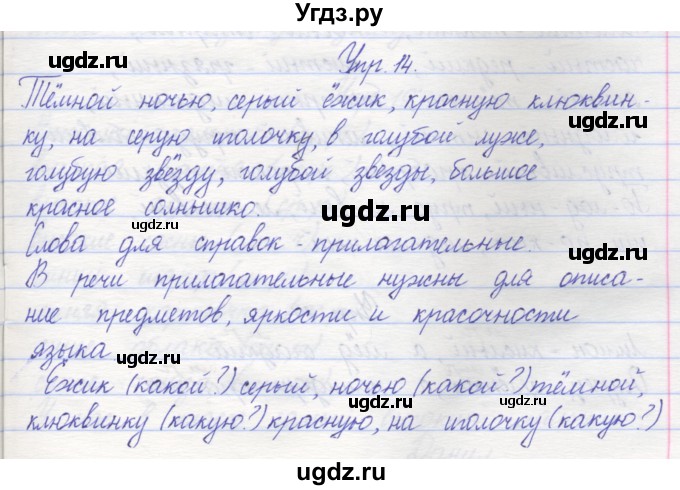 Угдз.ру
Упр. 14.
Тёмной ночью, серый ёжик, красную клюквин-
ку, на серую иголочку, в голубой луже,
голубую звёзду, голубой звёзды, большое
красное солнышко.
Слова для справок - прилагательные.
В речи прилагательные нужны для описа-
ние предметов, яркости и красочности
языка
Ёжик (какой?) серый, ночью (какой?) тёмной,
клюквинку (какую?) красную, на иголочку (какую?)
ugdz.ru
ugdz.ru
ugdz.ru
ugdz.ru
ugdz.ru
ugdz.ru
ugdz.ru
ugdz.ru
ugdz.ru
ugdz.ru
ugdz.ru
ugdz.ru